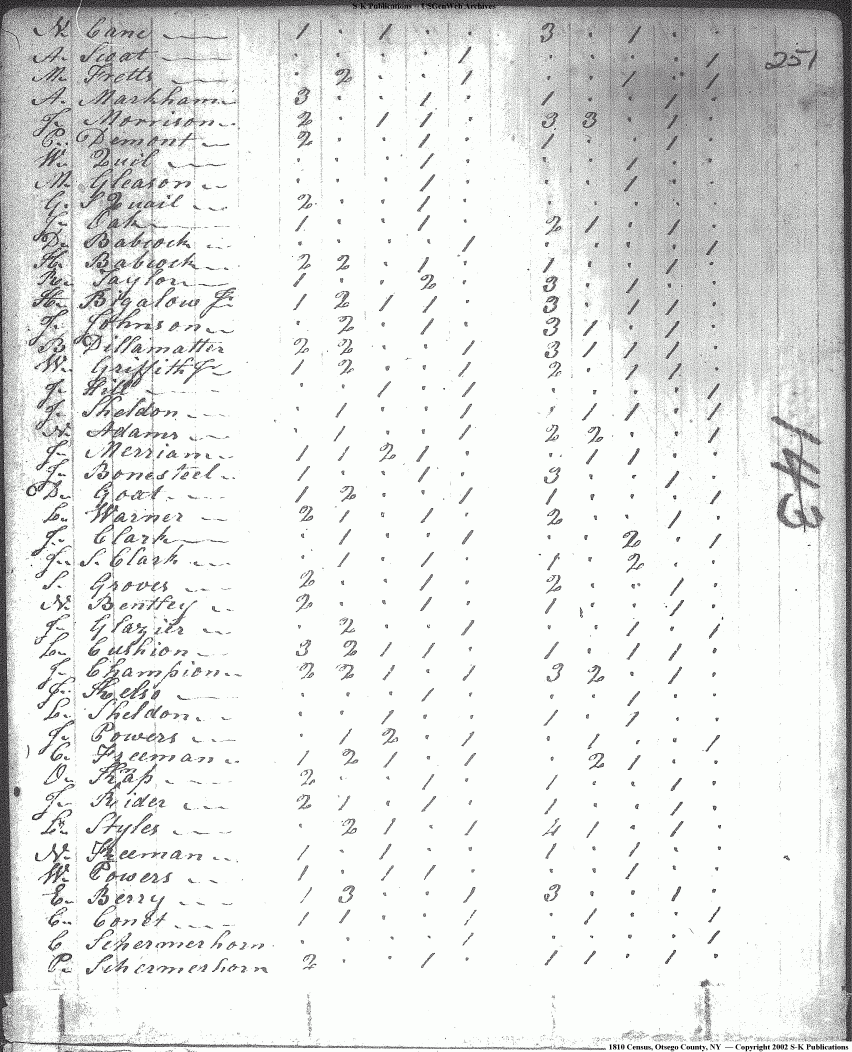 S-K Publications - USGenWeb Archives
N. Cane 1 . 1 . . 3 . 1 . .
A. Scoat . . . . 1 . . . . 1
251
M. Fretts . 2 . . 1 . . 1 . 1
A. Markham 3 . . 1 . 1 . . 1 .
J. Morrison 2 . 1 1 . 3 3 . 1 .
C. Demont 2 . . 1 . 1 . . 1 .
W. Quil . . . 1 . . . 1 . .
M. Gleason . . . 1 . . . 1 . .
G. S Quail 2 . . 1 . . . . . .
J. Oak 1 . . 1 . 2 1 . 1 .
D. Babcock . . . . 1 . . . . 1
H. Babcock 2 2 . 1 . 1 . . 1 .
R. Taylor 1 . . 2 . 3 . 1 . .
H. Bigalow Jr 1 2 1 1 . 3 . 1 1 .
J. Johnson . 2 . 1 . 3 1 . 1 .
B. Dillamatter 2 2 . . 1 3 1 1 1 .
W. Griffith Jr 1 2 . . 1 2 . 1 1 .
J. Hill . . 1 . 1 . . . . 1
J. Sheldon . 1 . . 1 . 1 1 . 1
N. Adams . 1 . . 1 2 2 . . 1
J. Merriam 1 1 2 1 . . 1 1 . .
J. Bonesteel 1 . . 1 . 3 . . 1 .
143
D. Goat 1 2 . . 1 1 . . . 1
L. Warner 2 1 . 1 . 2 . . 1 .
J. Clark . 1 . . 1 . . 2 . 1
J. S. Clark . 1 . 1 . 1 . 2 . .
S. Groves 2 . . 1 . 2 . . 1 .
N. Bentley 2 . . 1 . 1 . . 1 .
J. Glazier . 2 . . 1 . . 1 . 1
L. Cushion 3 2 1 1 . 1 . 1 1 .
J. Champion 2 2 1 . 1 3 2 . 1 .
J. Kelso . . . 1 . . . 1 . .
L. Sheldon . . 1 . . 1 . 1 . .
J. Powers . 1 2 . 1 . 1 . . 1
C. Freeman 1 2 1 . 1 . 2 1 . .
O. Kap 2 . . 1 . 1 . . 1 .
J. Rider 2 1 . 1 . 1 . . 1 .
L. Styles . 2 1 . 1 4 1 . 1 .
N. Freeman 1 . 1 . . 1 . 1 . .
W. Powers 1 . 1 1 . . . 1 . .
E. Berry 1 3 . . 1 3 . . 1 .
C. Conet 1 1 . . 1 . 1 . . 1
C Schermerhorn . . . . 1 . . . . 1
P. Schermerhorn 2 . . 1 . 1 1 1 1 .
1810 Census, Otsego County, NY — Copyright 2002 S-K Publications